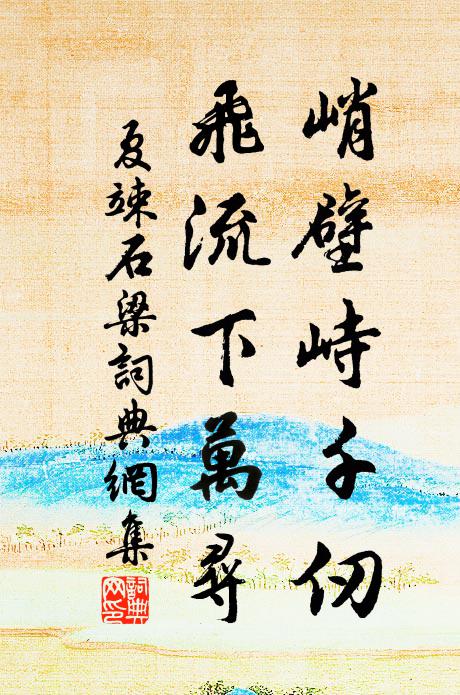 峭壁峙千仞
飛流下萬尋
夏竦石梁詞典網集
詞典网印